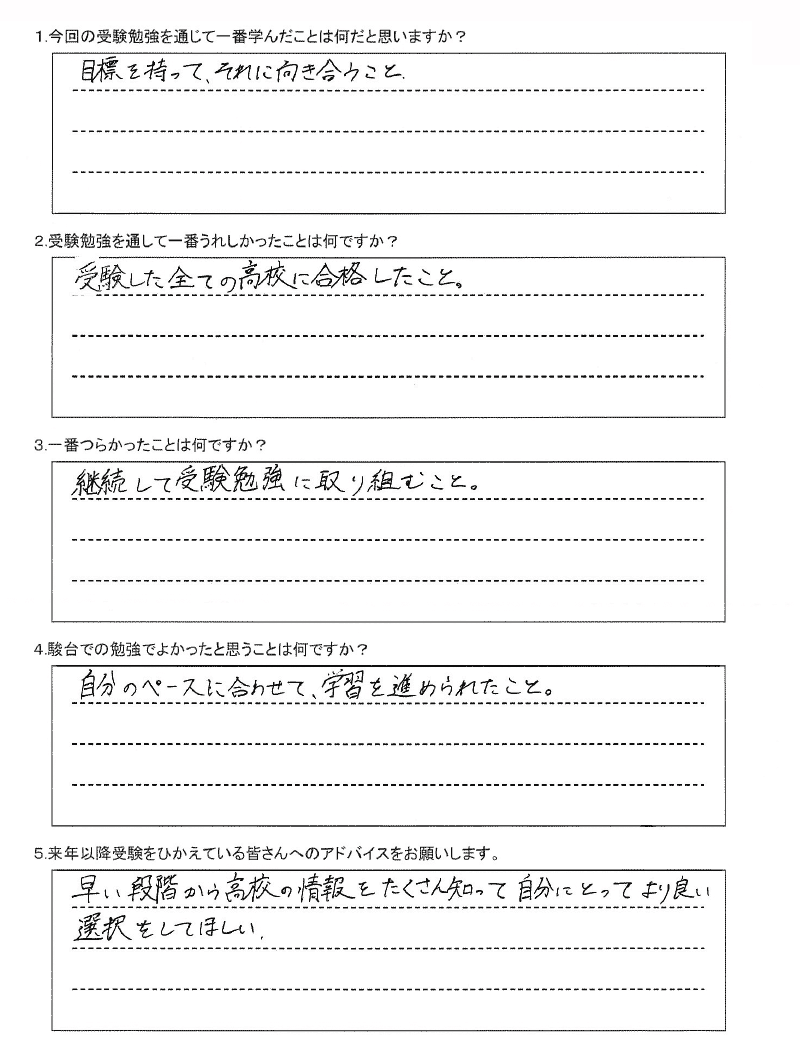 1.今回の受験勉強を通じて一番学んだことは何だと思いますか？
目標を持って、それに向き合うこと.
2.受験勉強を通して一番うれしかったことは何ですか？
受験した全ての高校に合格したこと。
3.一番つらかったことは何ですか？
継続して受験勉強に取り組むこと。
4.駿台での勉強でよかったと思うことは何ですか？
自分のペースに合わせて、学習を進められたこと。
5.来年以降受験をひかえている皆さんへのアドバイスをお願いします。
早い段階から高校の情報をたくさん知って自分にとってより良い
選択をしてほしい.